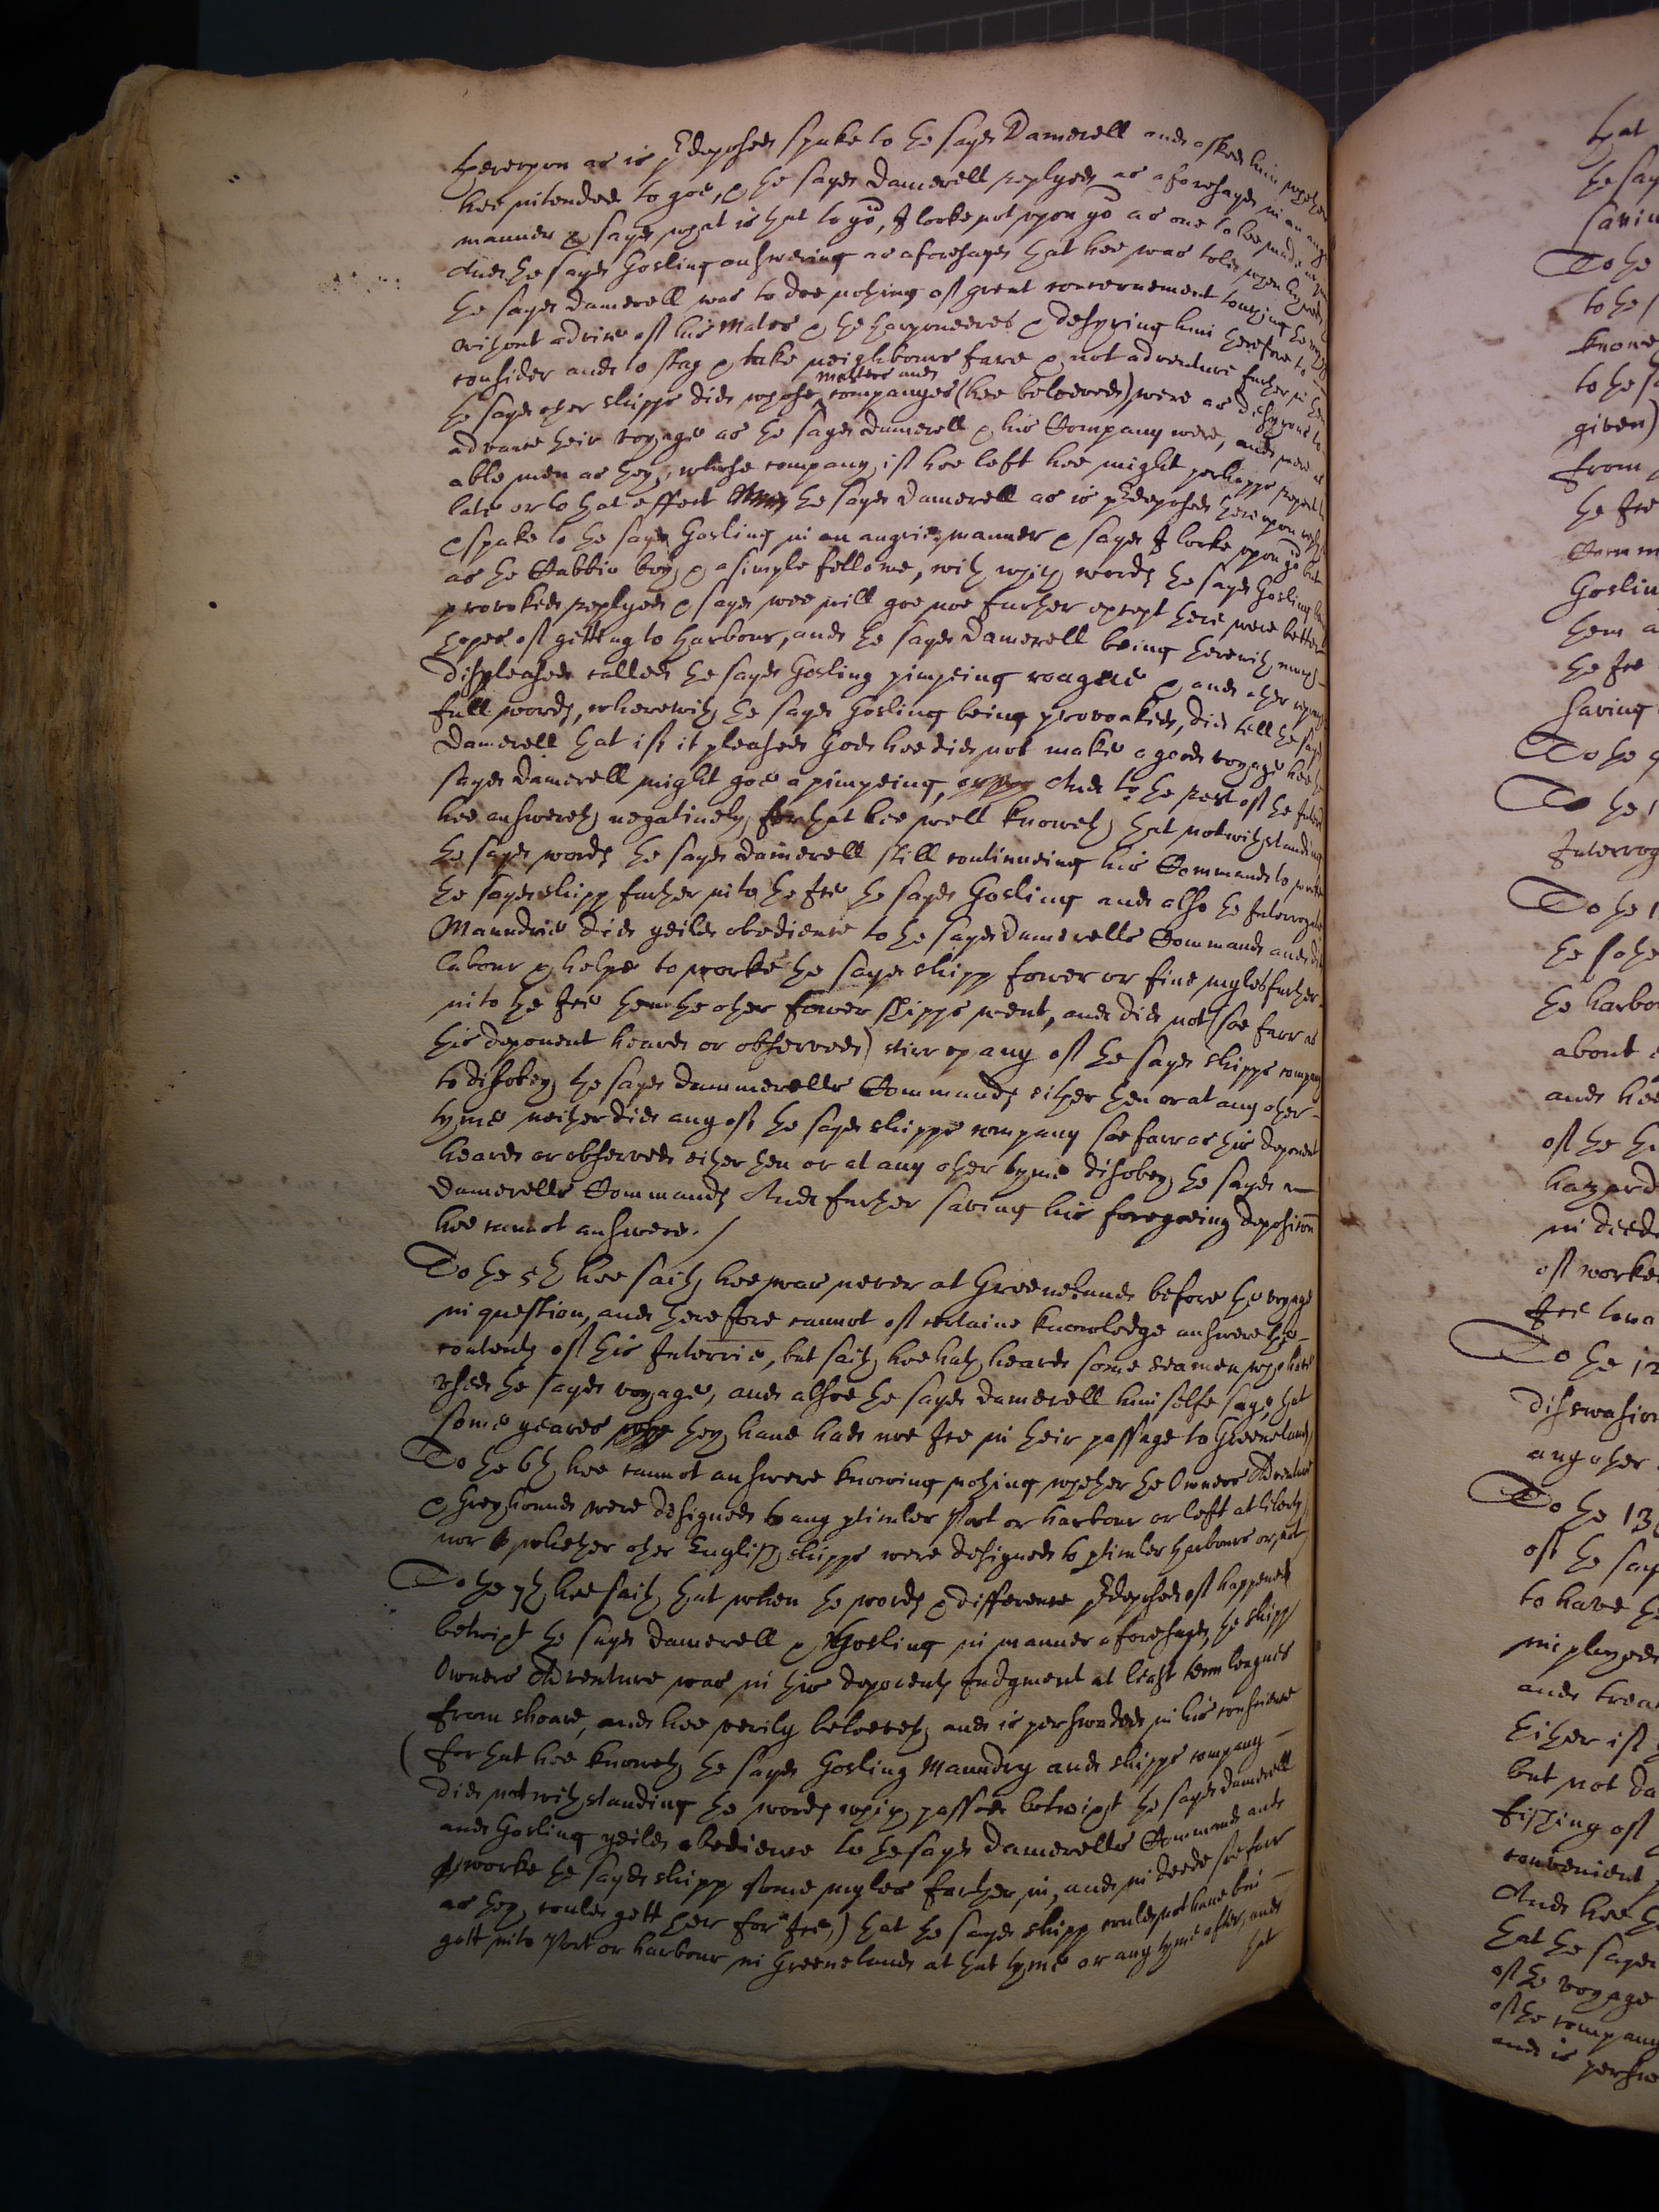 thereupon as is predeposed spake to the sayd Damerell and asked him whether
hee intended to goe, & the sayd Damerell replyed as aforesayd in an angry
manner & sayd what is that to yow, I looke not upon yow as one to bee made
And the sayd Gosling answering as aforesayd that hee was told when hyred
the sayd Damerell was to doe nothing of great concernement touching the voyage
without advise of his Mates & the harponeeres & desyring him therefore to
consider and to stay & take neighbours fare & not adventure further in then
the sayd other shipps did, whose masters and companyes (hee beleeved) were as desyrous to
advance their voyage as the sayd Damerell & his Company were, and were as
able men as they, whose company if hee left hee might perhapps repent
late or to that effect the sayd Damerell as is predeposed thereupon
& spake to the sayd Gosling in an angrie manner & sayd I looke upon yow but
as the Cabbin boy & a simple fellowe, with which words the sayd Gosling
provoked replyed & sayd wee will goe noe further except there were better
hopes of getting to harbour, and the sayd Damerell being therewith much
displeased called the sayd Gosling pimpeing roague & and other
full words, wherewith the sayd Gosling being provoaked, did tell the sayd
Damerell that if it pleased God hee did not make a good voyage hee the
sayd Damerell might goe a pimpeing, And to the rest of the Interr
hee answereth negatively, for that hee well knoweth that notwithstanding
the sayd words the sayd Damerell still continueing his Commands to worke
the sayd shipp further into the Ice the sayd Gosling and also the Interrogate
Maundrie did yeild obedience to the sayd Damerells Command and did
labour & helpe to worke the sayd shipp fower or five myles further
into the Ice then the other fower shipps went, and did not (soe farr as
this deponent heard or observed) stirr up any of the sayd shipps company
to disobey the sayd Dammerells Commands either then or at any other
tyme neither did any of the sayd shipps company soe farr as this deponent
heard or observed either then or at any other tyme disobey the sayd
Damerells Commands And further saving his foregoeing deposition
hee cannot answere. /
To the 5th hee saith hee was never at Greeneland before the voyage
in question, and therefore cannot of certaine knowledge answere the
contents of this Interrie, but saith hee hath heard some seamen who have
used the sayd voyage, and alsoe the sayd Damerell himselfe say, that
some yeares they have had noe Ice in their passage to Greeneland,
To the 6th hee cannot answere knowing nothing whether the Owners Adventure
& Greyhound were designed to any pticuler Port or harbour or left at liberty
nor whether other English shipps were designed to pticuler harbours or not,
To the 7th hee saith that when the words & difference predeposed of happened
betwixt the sayd Damerell & Gosling in manner aforesayd, the shipp
Owners Adventure was in this deponents judgment at least tenn leagues
from shoare, and hee verily beleeveth and is perswaded in his conscience
(for that hee knoweth the sayd Gosling Maundry and shipps company
did notwithstanding the words which passed betwixt the sayd Damerell
and Gosling yeild obedience to the sayd Damerells Command and
worke the sayd shipp some myles further in, and in deede soe farr
as they could gett her for Ice,) that the sayd shipp could not have bin
gott into Port or harbour in Greeneland at that tyme or any tyme after, and
that
that
the say
savin
To the
to the s
knowe
to the sa
given)
from
the Ice
Comm
Goslin
them a
the Ice
saving
To the 9
To the 1
Interrog
To the 1
the
the harbo
about
and hee
of the
hazard
in deed
of worke
Ice towa
To the 12
disswasion
any other
To the 13
of the say
to have
imployed
and trea
Either if
but not da
fishing of
convenient
And hee
that the sayd
of the voyage
of the company
and is perswa